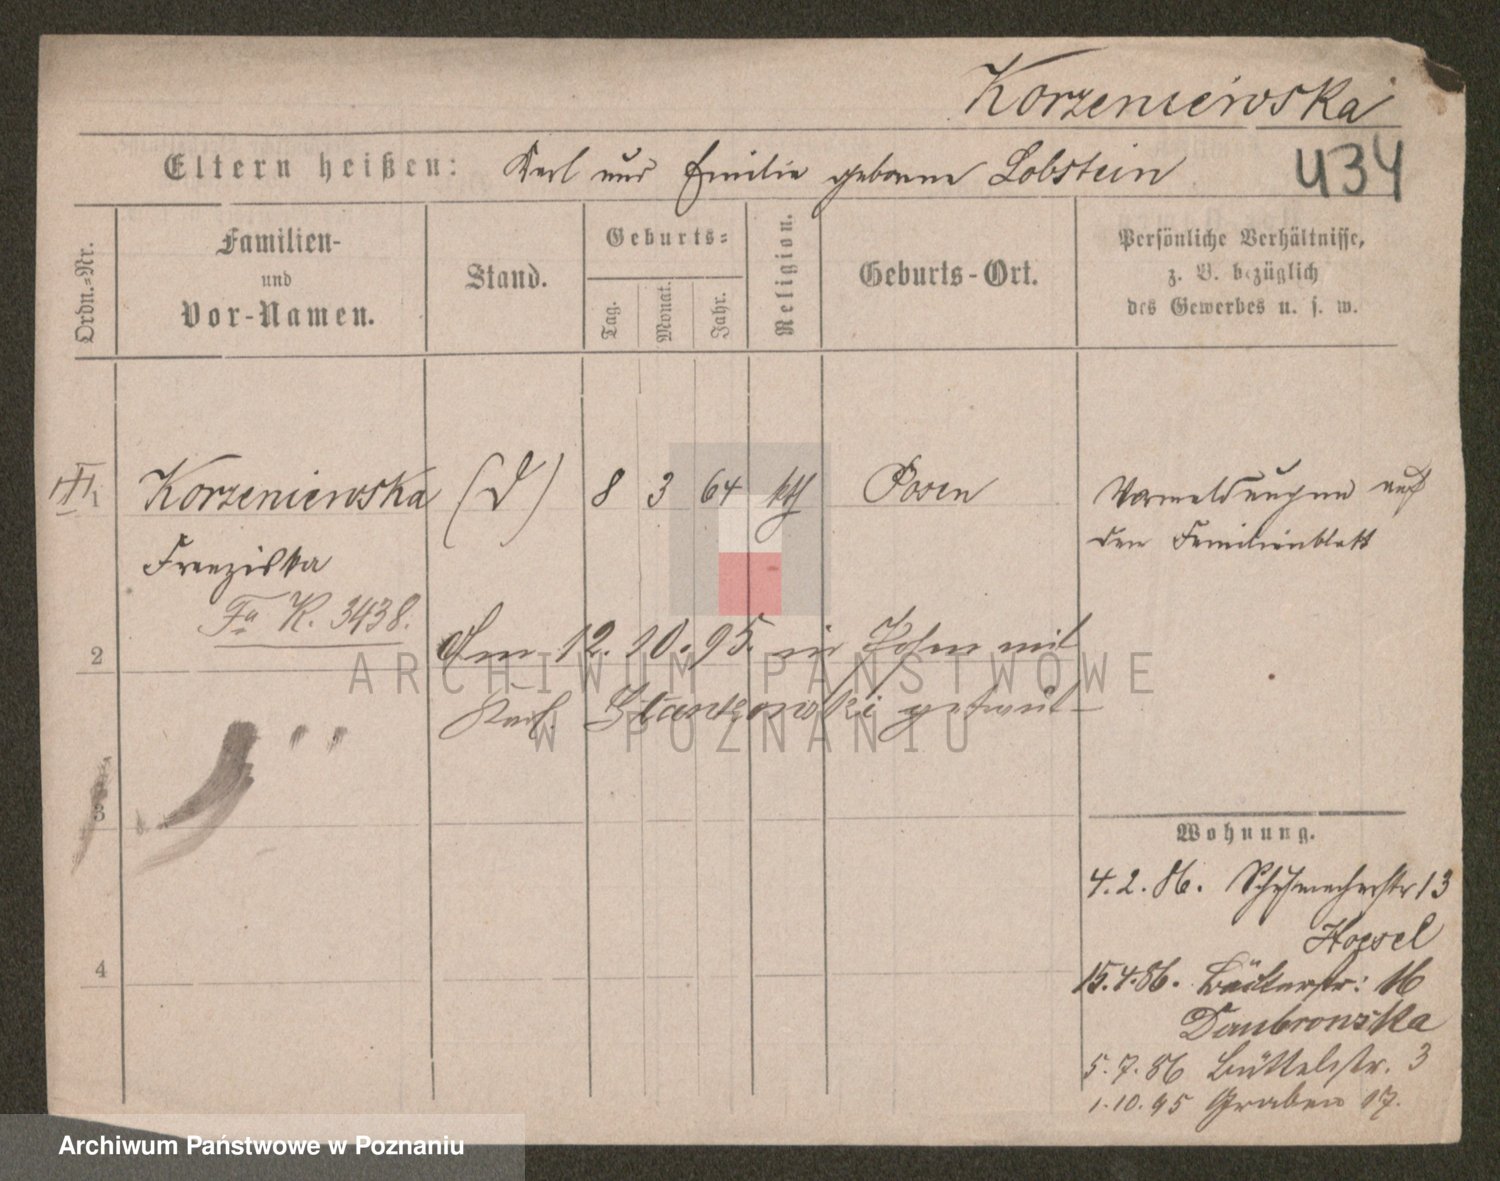 Korzeniewska
Eltern heißen: Karl und Emilie geborene Lobstein
434
Ordn.-Nr.
Familien-
und
Vor-Namen.
Stand.
Geburts-
Tag.
Monat.
Jahr.
Religion.
Geburts-Ort.
Persönliche Verhältnisse,
z. B. bezüglich
des Gewerbes u. s. w.
Korzeniewska (D) 8 3 64 kth Posen
Vormeldungen auf
den Familienblatt
Franziska
Fa K. 3438.
2
Am 12.10.95. in Posen mit
Karl getraut
3
4
Wohnung.
4.2.86. Schuhmacherstr 13
Hoesel
15.4.86. Bäckerstr: 16
Dombrowska
5.7.86 Büttelstr. 3
1.10.95 Graben 17.
ARCHIWUM PAŃSTWOWE
W POZNANIU
Archiwum Państwowe w Poznaniu